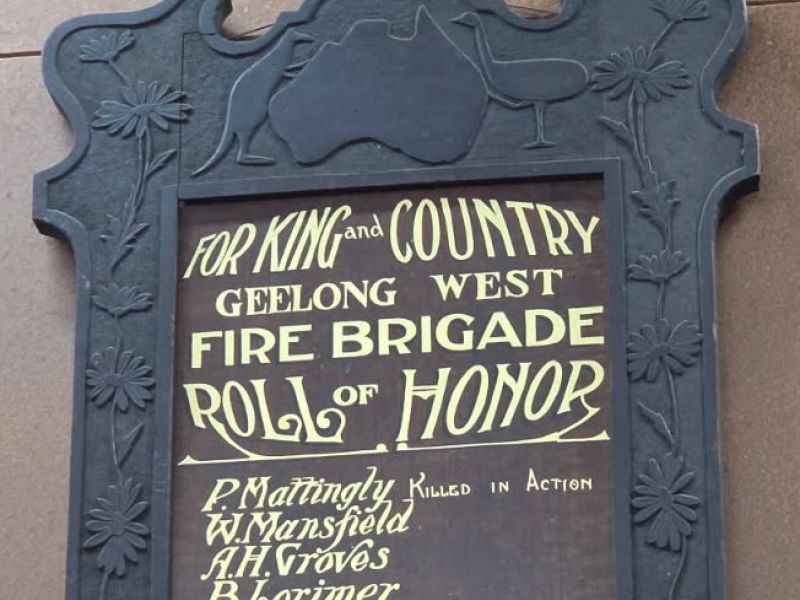 FOR KING and COUNTRY
GEELONG WEST
FIRE BRIGADE
ROLL OF HONOR
P. Mattingly KILLED IN ACTION
W. Mansfield
A.H. Groves
B. Lorimer